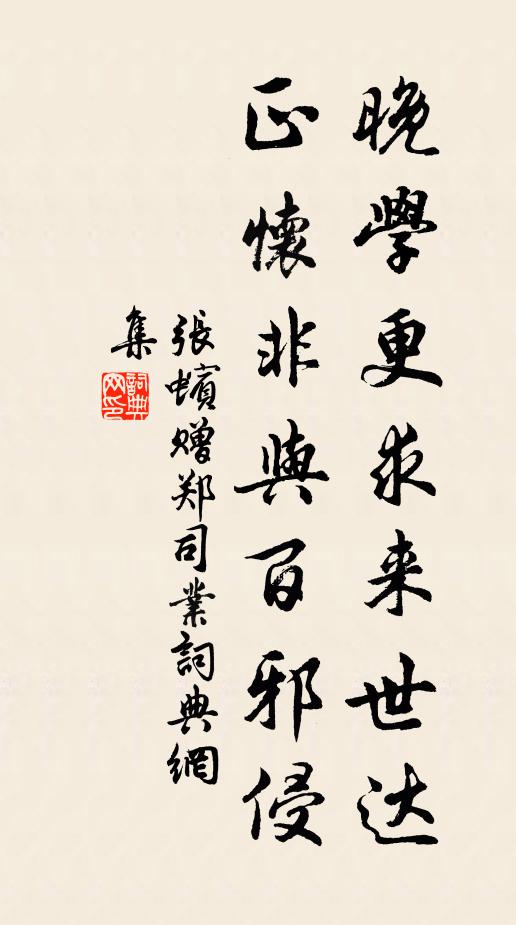 晚學更求来世达
正懷非與百邪侵
張蠙赠郑司業詞典網
集
詞典
网印